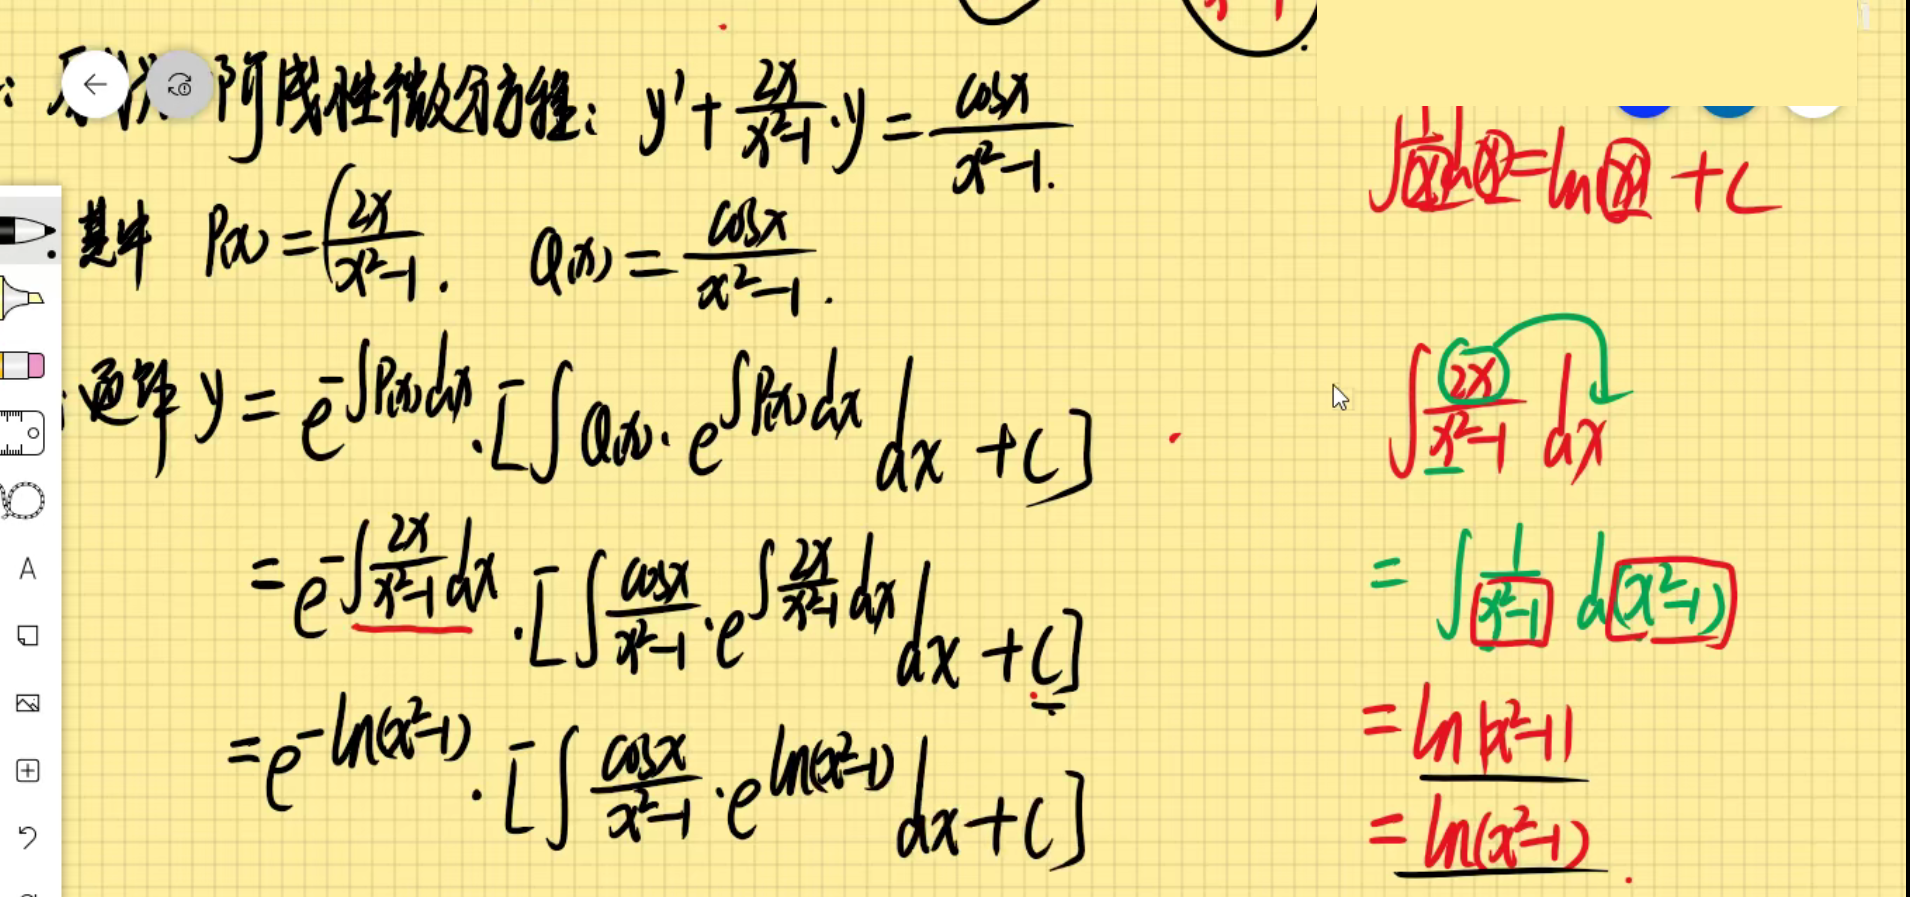 阶线性微分方程: y' + \frac{2x}{x²-1}·y = \frac{cosx}{x²-1}.
其中 P(x) = \frac{2x}{x²-1}. Q(x) = \frac{cosx}{x²-1}.
通解 y = e^{-∫P(x)dx}·[∫Q(x)·e^{∫P(x)dx}dx + C]
= e^{-∫\frac{2x}{x²-1}dx}·[∫\frac{cosx}{x²-1}·e^{∫\frac{2x}{x²-1}dx}dx + C]
= e^{-ln(x²-1)}·[∫\frac{cosx}{x²-1}·e^{ln(x²-1)}dx + C]
∫\frac{1}{(x)}d(x) = ln(x) + C
∫\frac{2x}{x²-1}dx
= ∫\frac{1}{x²-1}d(x²-1)
= ln|x²-1|
= ln(x²-1).
A